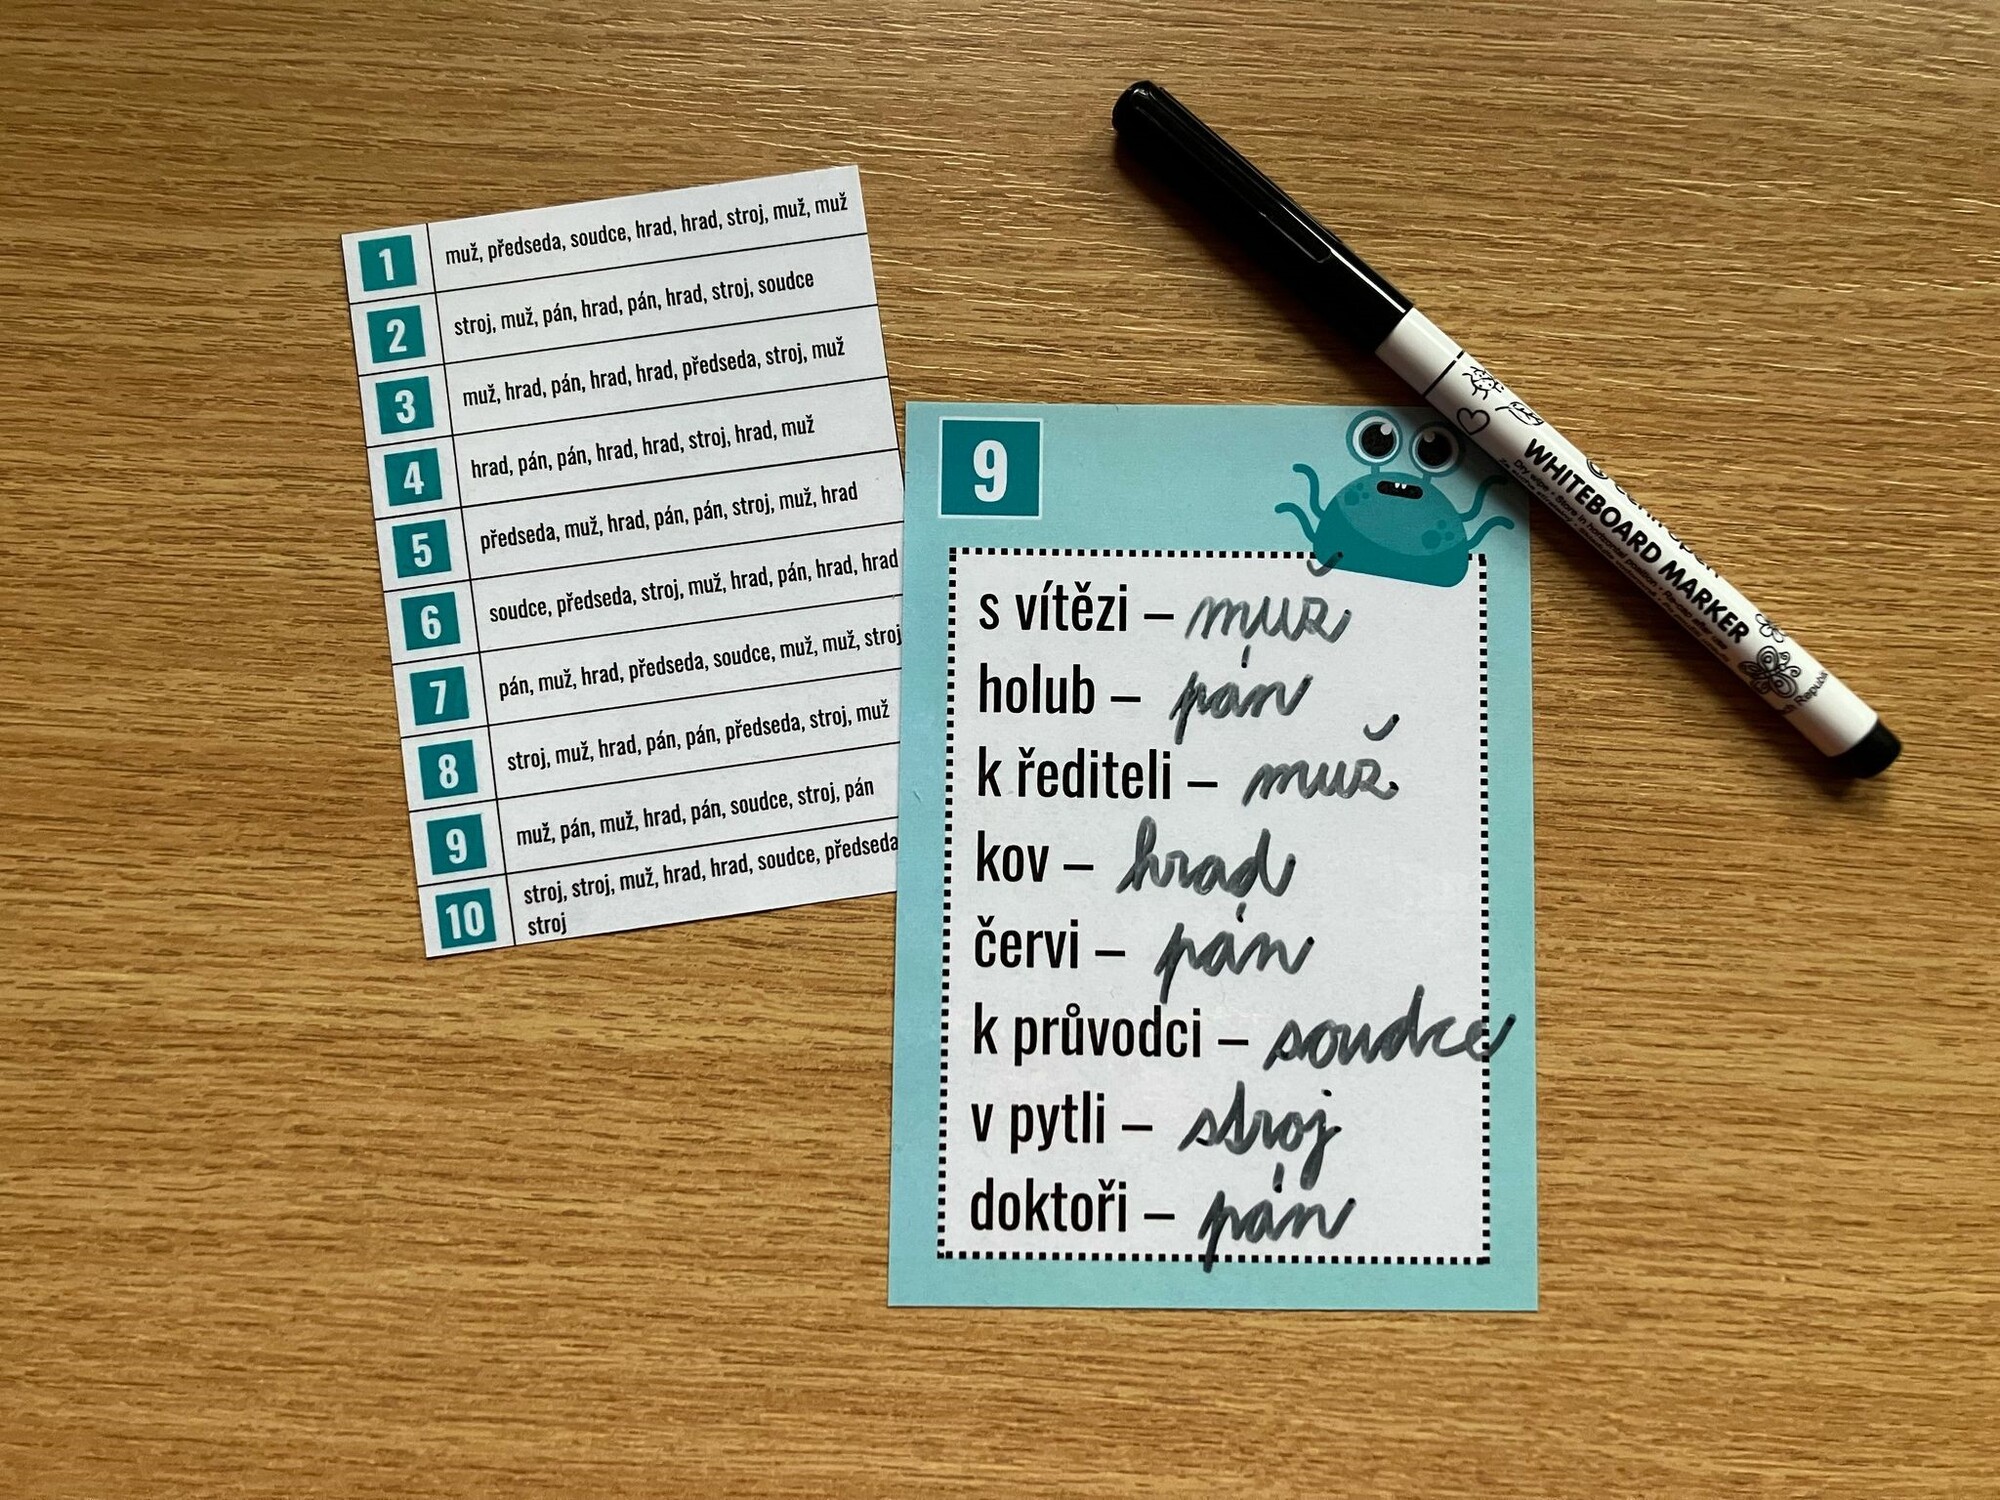 1 muž, předseda, soudce, hrad, hrad, stroj, muž, muž
2 stroj, muž, pán, hrad, pán, hrad, stroj, soudce
3 muž, hrad, pán, hrad, hrad, předseda, stroj, muž
4 hrad, pán, pán, hrad, hrad, stroj, hrad, muž
5 předseda, muž, hrad, pán, pán, stroj, muž, hrad
6 soudce, předseda, stroj, muž, hrad, pán, hrad, hrad
7 pán, muž, hrad, předseda, soudce, muž, muž, stroj
8 stroj, muž, hrad, pán, pán, předseda, stroj, muž
9 muž, pán, muž, hrad, pán, soudce, stroj, pán
10 stroj, stroj, muž, hrad, hrad, soudce, předseda
stroj
9
s vítězi – muž
holub – pán
k řediteli – muž
kov – hrad
červi – pán
k průvodci – soudce
v pytli – stroj
doktoři – pán
WHITEBOARD MARKER